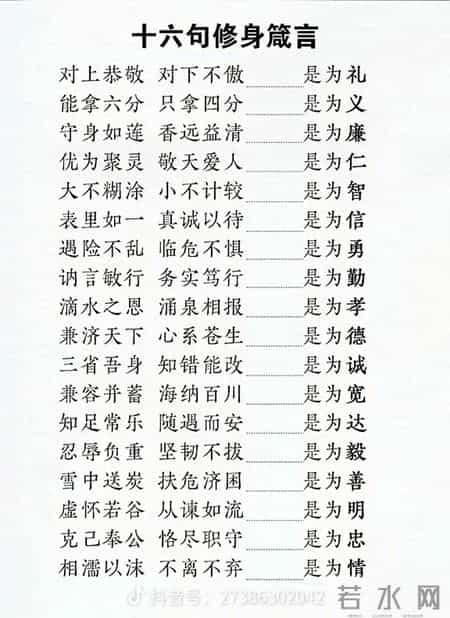 十六句修身箴言
对上恭敬 对下不傲 是为礼
能拿六分 只拿四分 是为义
守身如莲 香远益清 是为廉
优为聚灵 敬天爱人 是为仁
大不糊涂 小不计较 是为智
表里如一 真诚以待 是为信
遇险不乱 临危不惧 是为勇
讷言敏行 务实笃行 是为勤
滴水之恩 涌泉相报 是为孝
兼济天下 心系苍生 是为德
三省吾身 知错能改 是为诚
兼容并蓄 海纳百川 是为宽
知足常乐 随遇而安 是为达
忍辱负重 坚韧不拔 是为毅
雪中送炭 扶危济困 是为善
虚怀若谷 从谏如流 是为明
克己奉公 恪尽职守 是为忠
相濡以沫 不离不弃 是为情
抖音号：27386302042
若水网